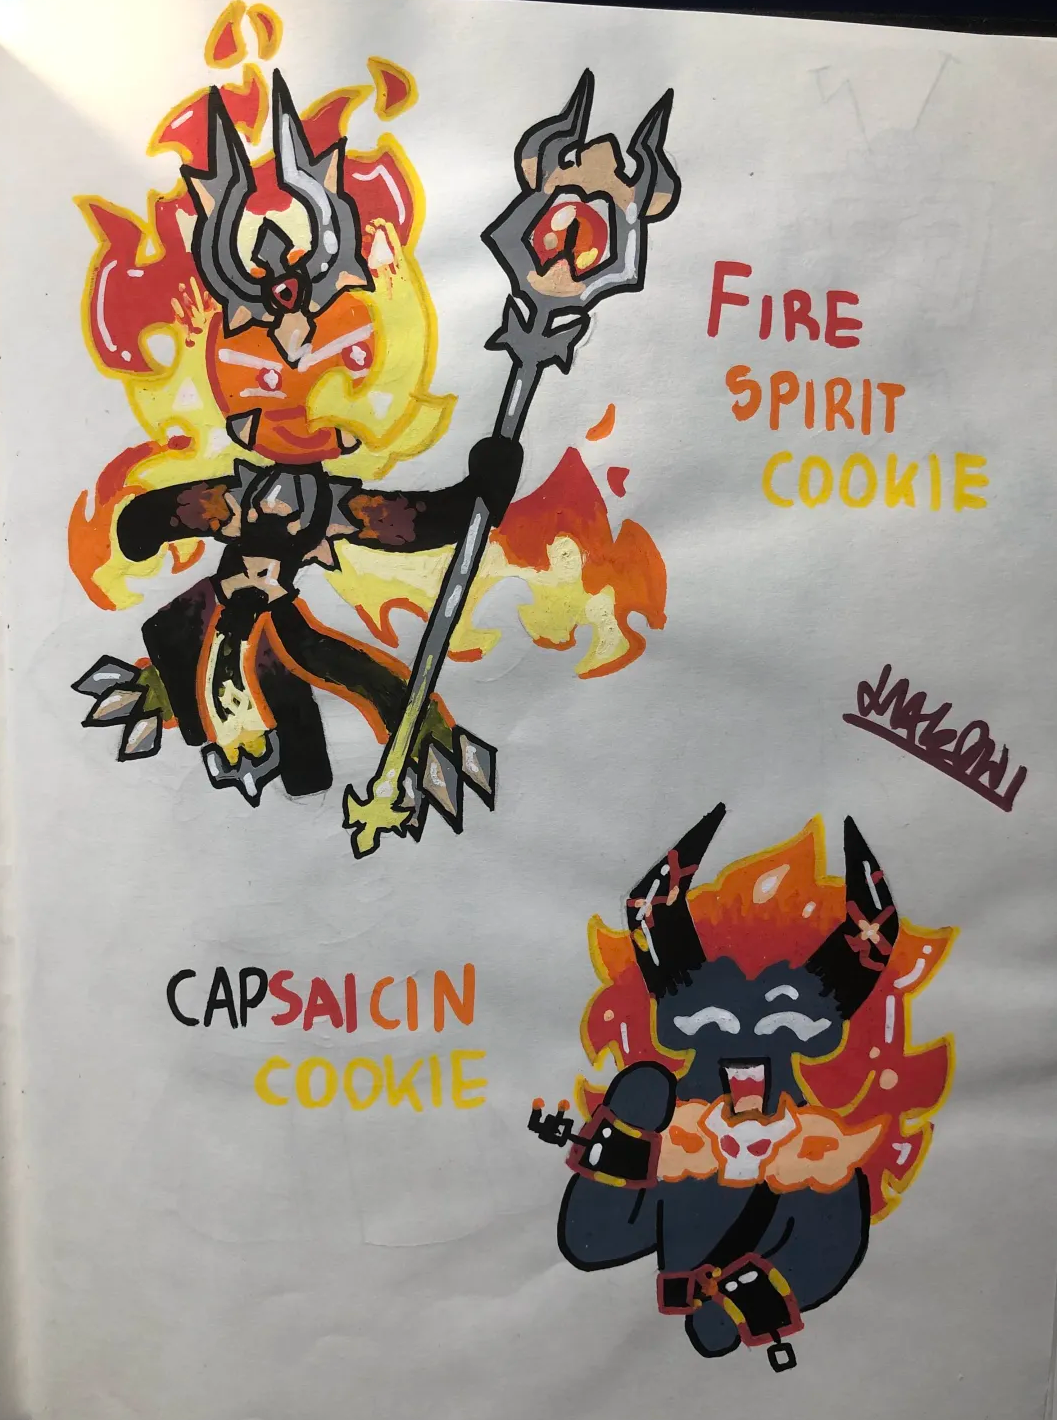 FIRE
SPIRIT
COOKIE
CAPSAICIN
COOKIE